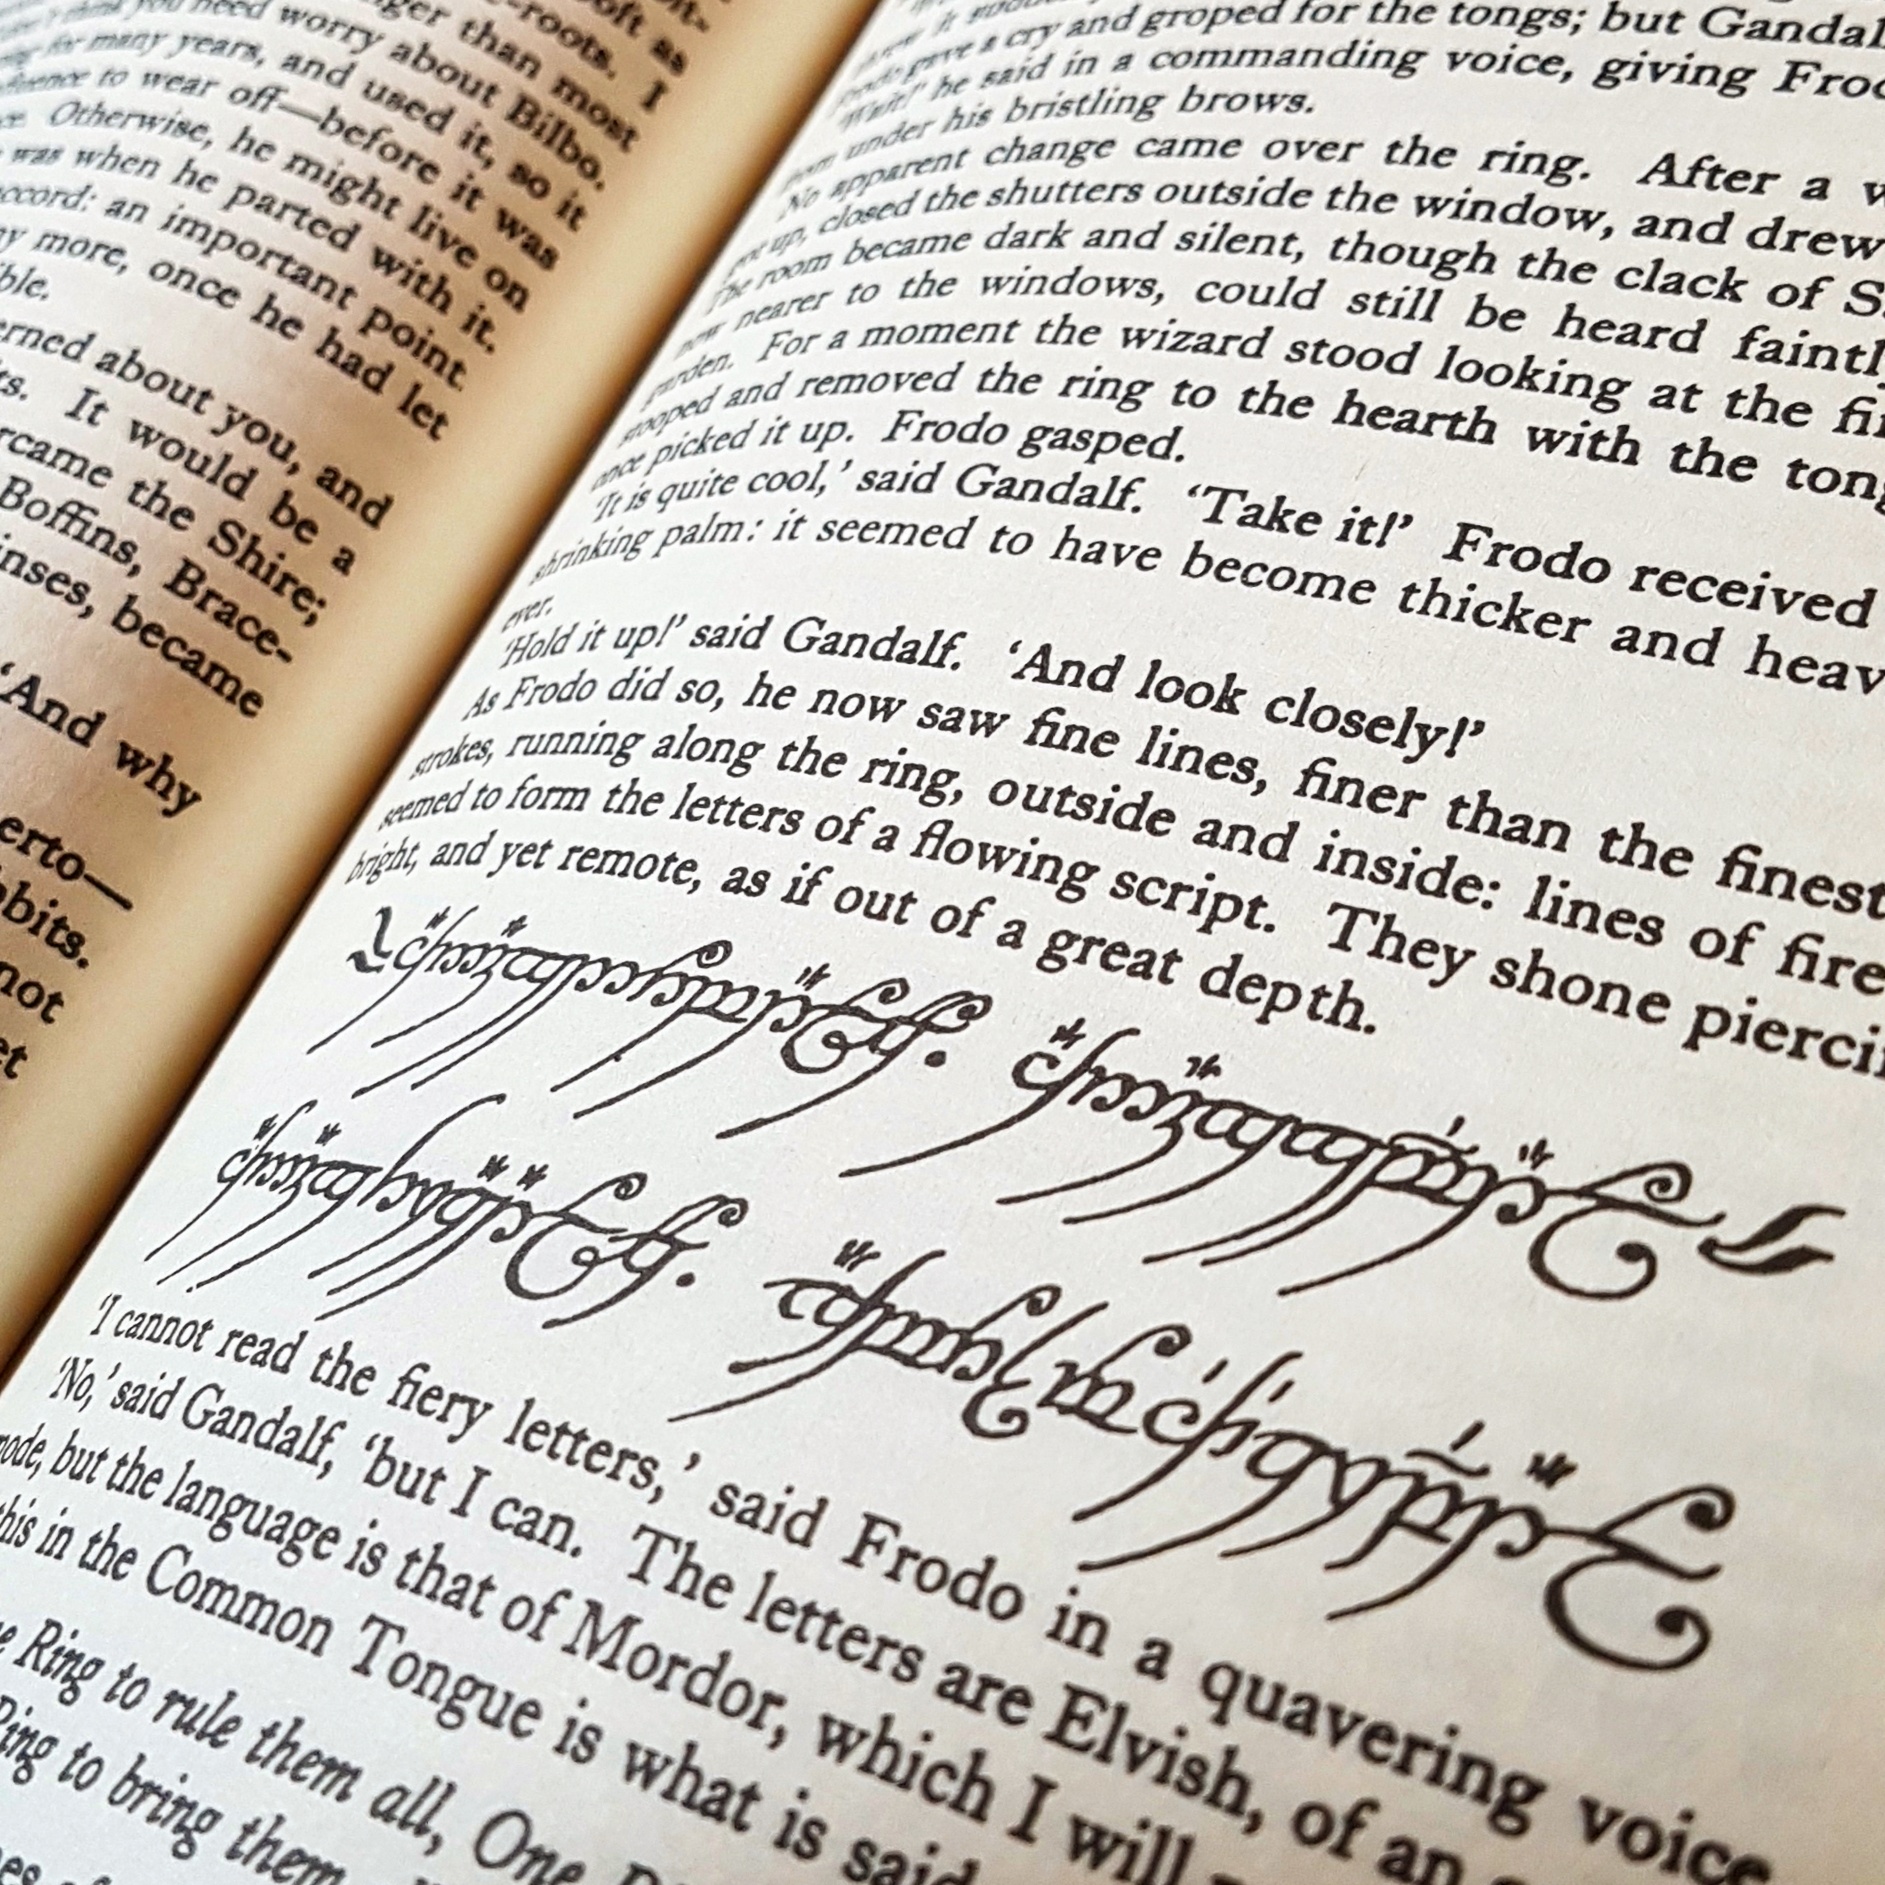 soft as
-roots. I
nger than most
need worry about Bilbo.
for many years, and used it, so it
to wear off—before it was
Otherwise, he might live on
was when he parted with it.
ccord: an important point.
ny more, once he had let
ble.
erned about you, and
ts. It would be a
rcame the Shire;
Boffins, Brace-
nses, became
‘And why
erto—
bbits.
not
et
Frodo gave a cry and groped for the tongs; but Gandal
‘Wait!’ he said in a commanding voice, giving Frod
from under his bristling brows.
No apparent change came over the ring. After a w
got up, closed the shutters outside the window, and drew
The room became dark and silent, though the clack of S
now nearer to the windows, could still be heard faintl
garden. For a moment the wizard stood looking at the fi
stooped and removed the ring to the hearth with the tong
once picked it up. Frodo gasped.
‘It is quite cool,’ said Gandalf. ‘Take it!’ Frodo received
shrinking palm: it seemed to have become thicker and heav
ever.
‘Hold it up!’ said Gandalf. ‘And look closely!’
As Frodo did so, he now saw fine lines, finer than the finest
strokes, running along the ring, outside and inside: lines of fire
seemed to form the letters of a flowing script. They shone piercin
bright, and yet remote, as if out of a great depth.
‘I cannot read the fiery letters,’ said Frodo in a quavering voice
‘No,’ said Gandalf, ‘but I can. The letters are Elvish, of an
mode, but the language is that of Mordor, which I will
this in the Common Tongue is what is said
e Ring to rule them all, One
Ring to bring them